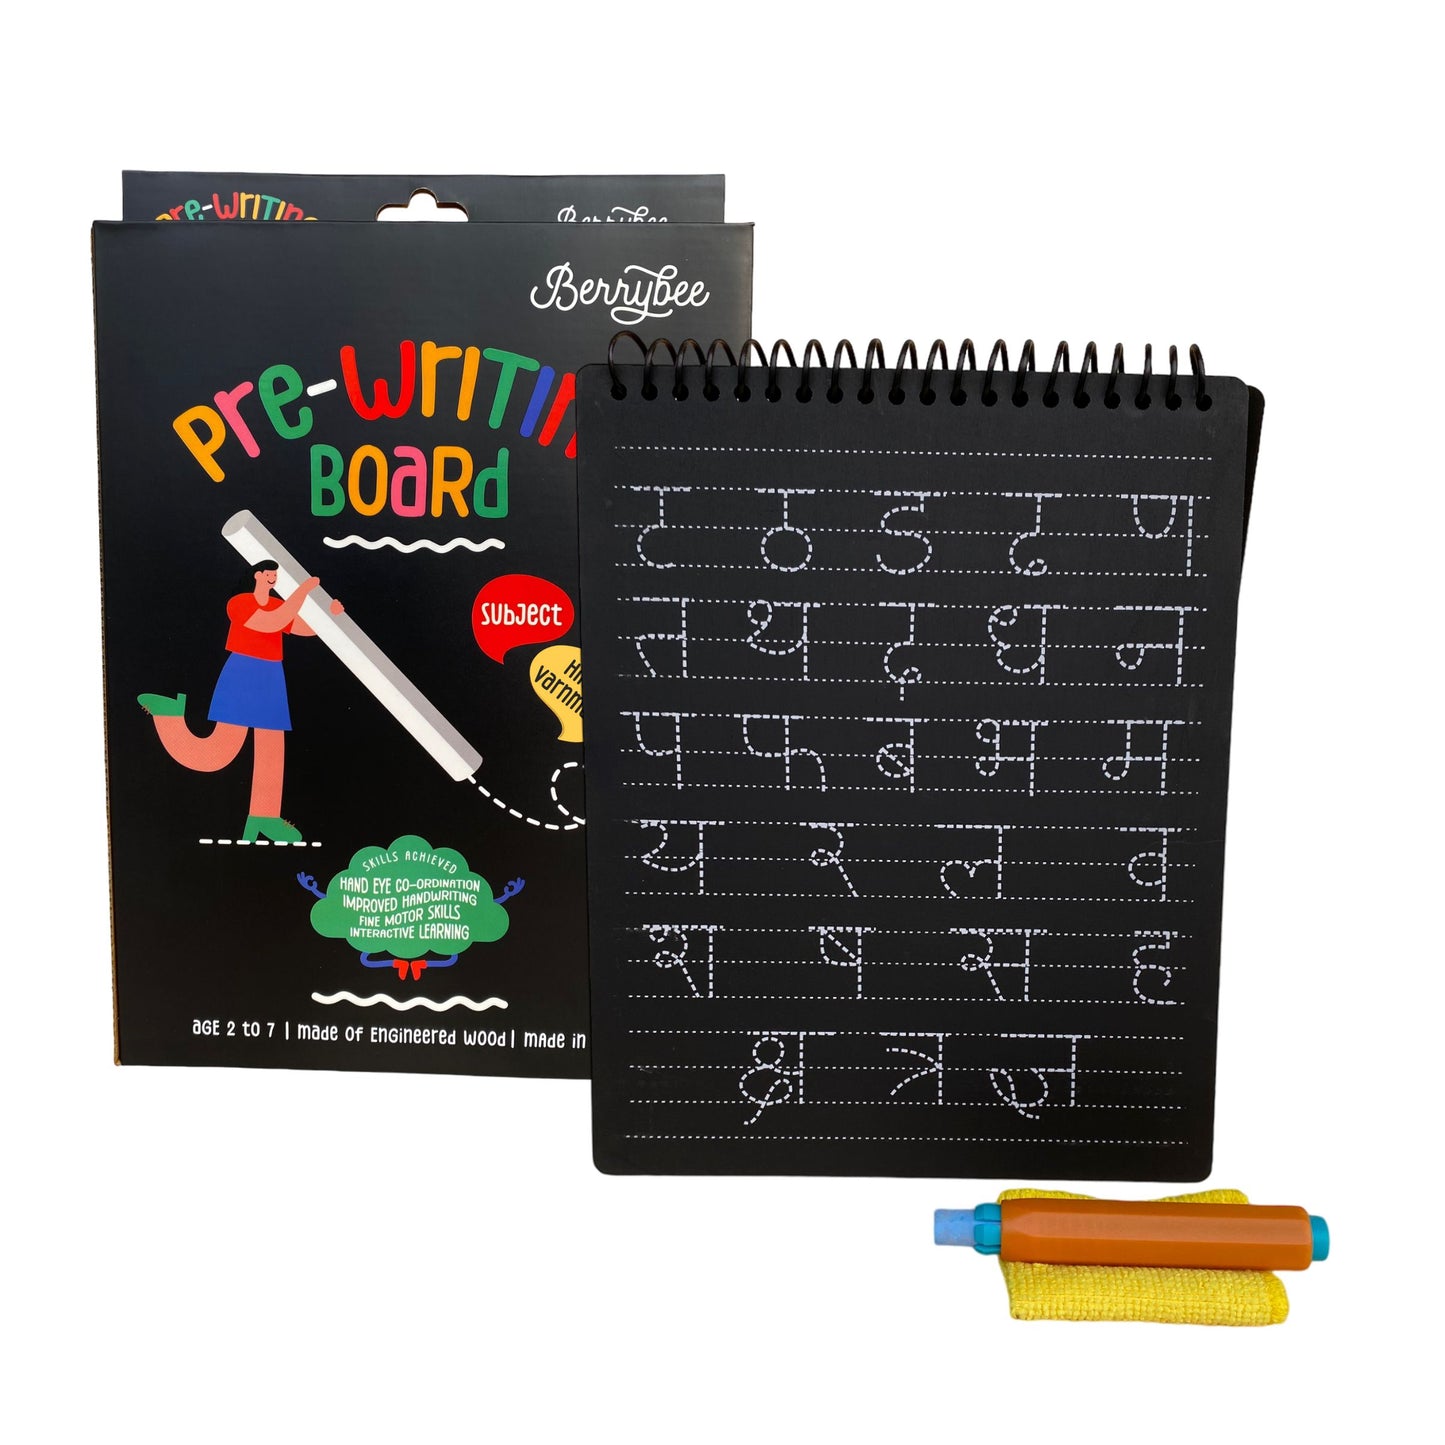 Pre-writing
Berrybee
Berrybee
Pre-writin
Board
Subject
SKILLS ACHIEVED
HAND EYE CO-ORDINATION
IMPROVED HANDWRITING
FINE MOTOR SKILLS
INTERACTIVE LEARNING
age 2 to 7 | made of engineered wood | made in
ट ठ ड ढ ण
त थ द ध न
प फ ब भ म
य र ल व
श ष स ह
क्ष त्र ज्ञ